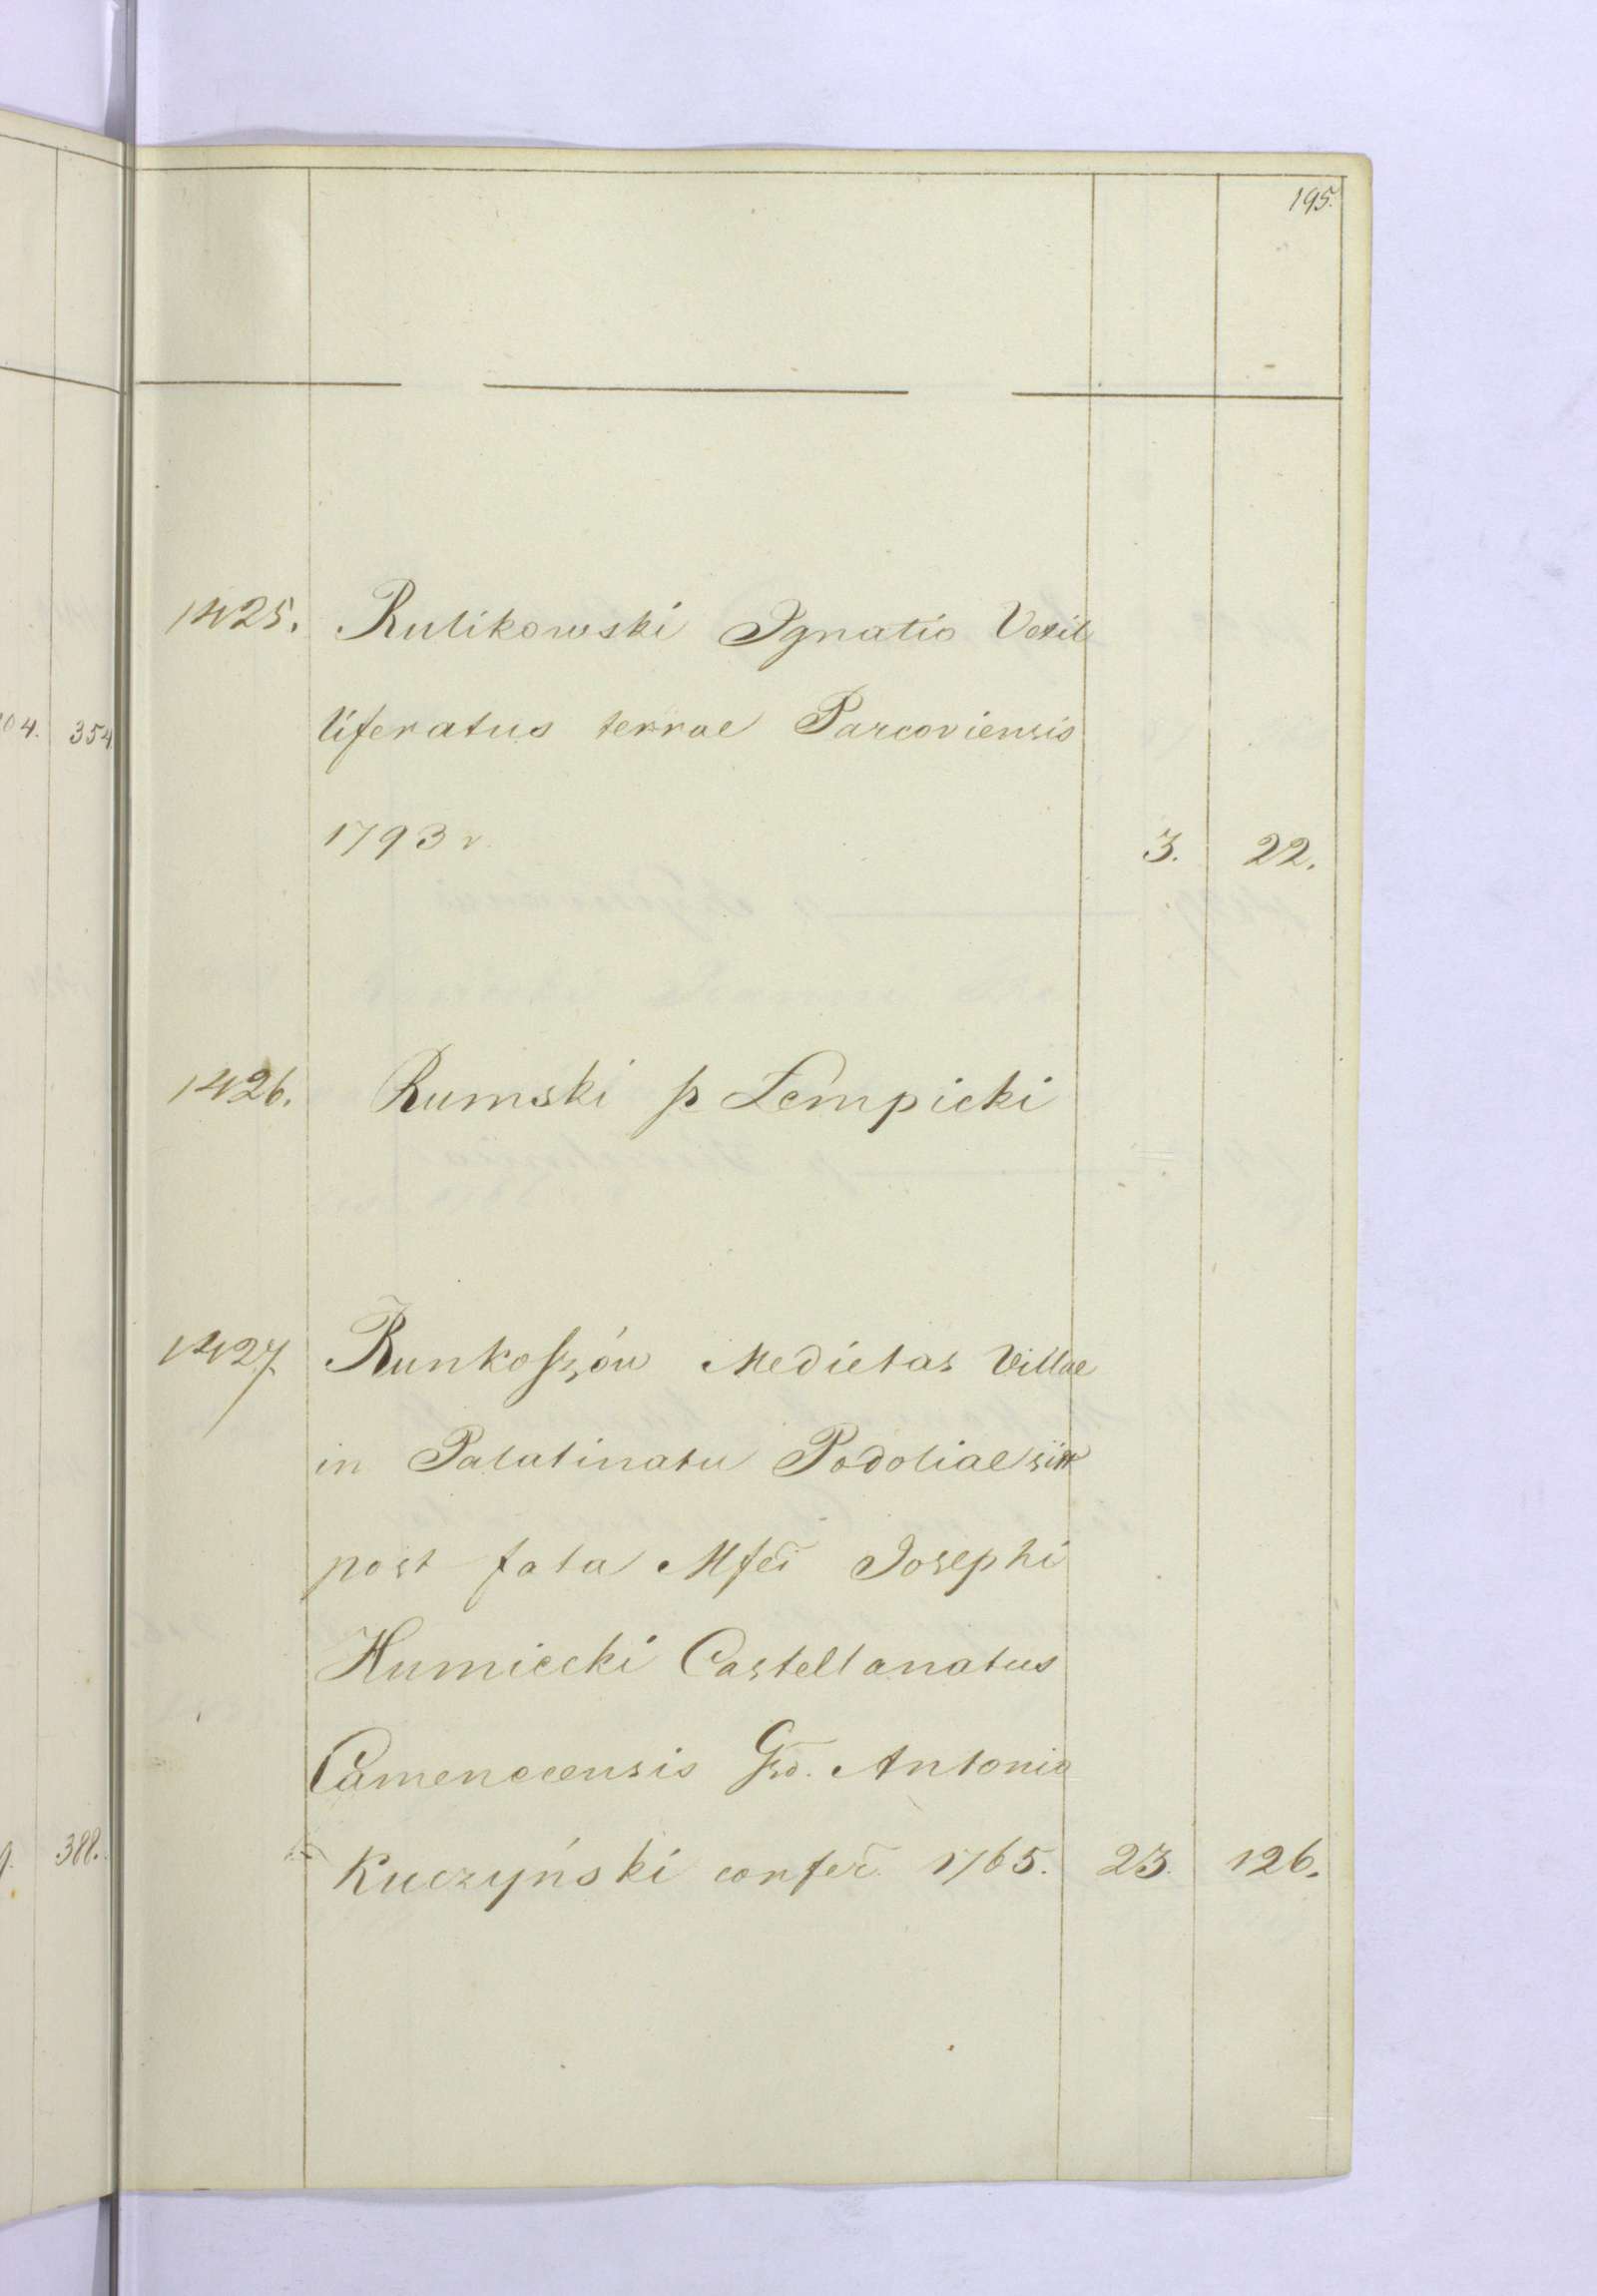 195.
1425. Rulikowski Ignatio Vexil
liferatus terrae Parcoviensis
1793 r. 3. 22.
1426. Rumski p Łempicki
1427. Runkoszów Medietas Villae
in Palatinatu Podoliae
post fata Mfci Josephi
Humiecki Castellanatus
Camenecensis Gso. Antonio
Kuczyński confer 1765. 23. 126.
04. 354
388.